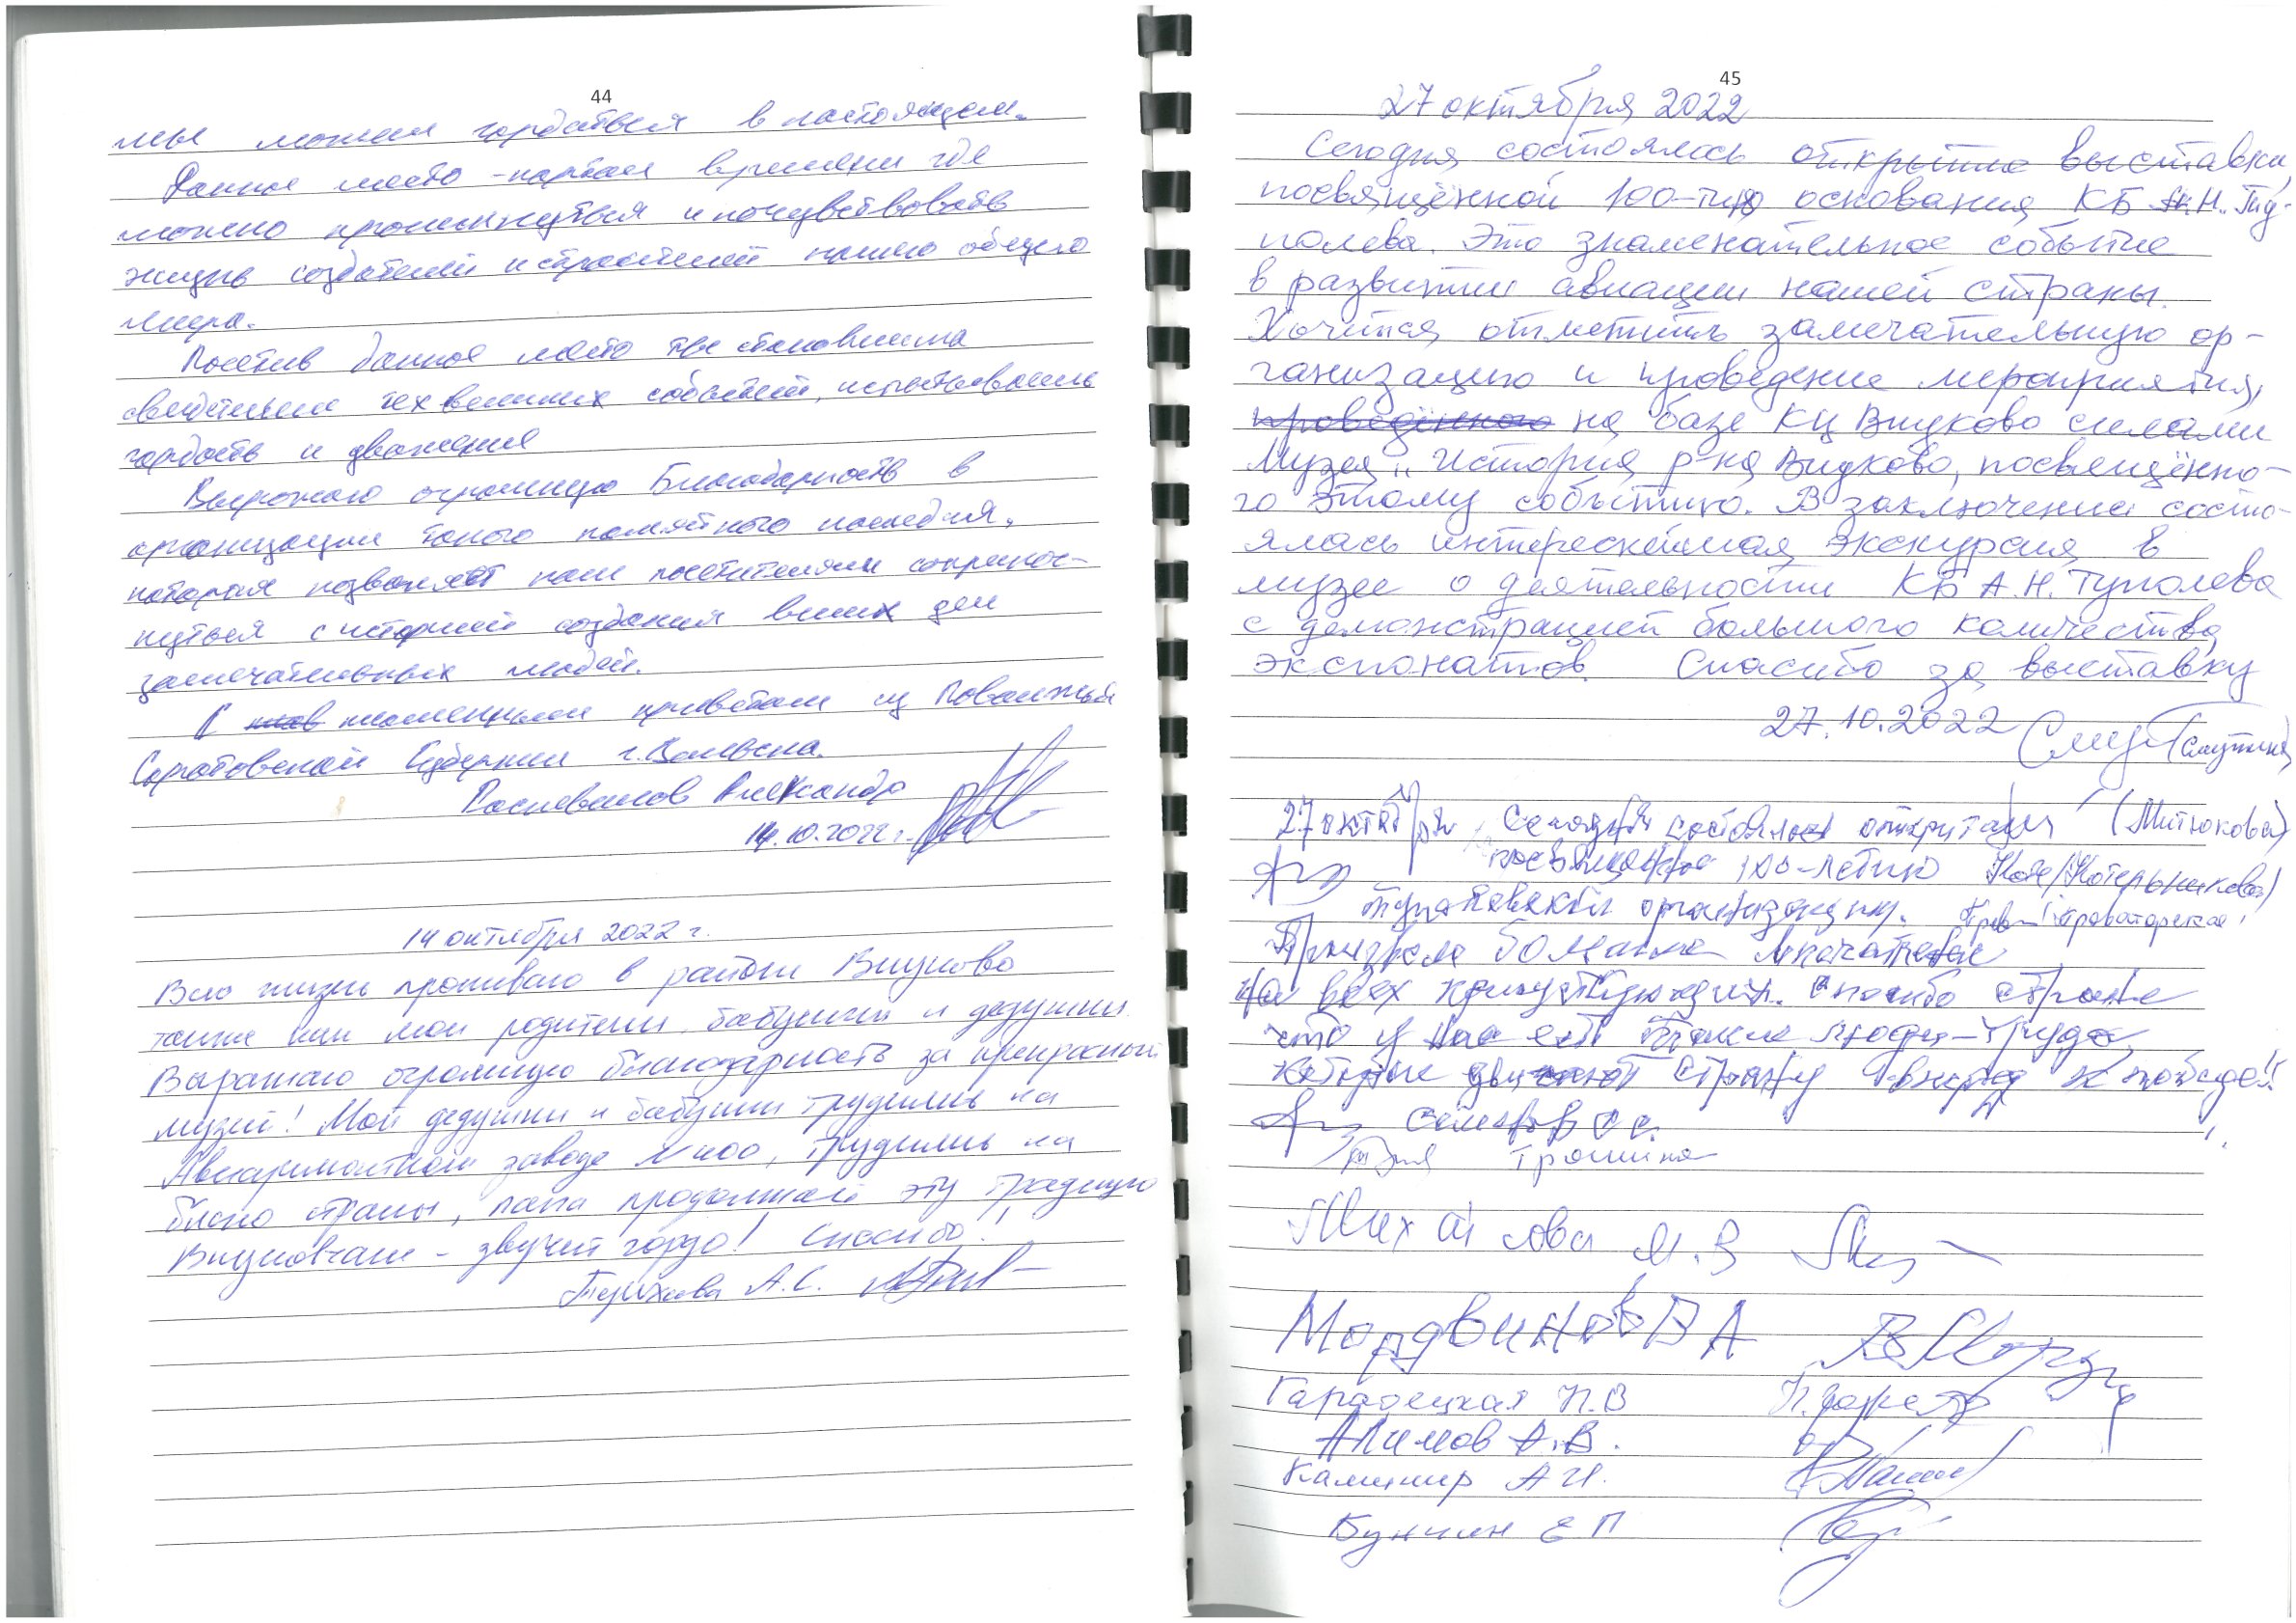 44
мы можем гордиться в настоящем.
Данное место - портал времени где
можно проникнуться и почувствовать
жизнь создателей и строителей нашего общего
мира.
Посетив данное место ты становишься
свидетелем тех великих событий, испытываешь
гордость и уважение
Выражаю огромную Благодарность в
организации такого памятного наследия,
которая позволяет нам посетителям соприкос-
нуться с историей создания великих дел
замечательных людей.
С пламенными приветами из Поволжья
Саратовской Губернии г. Вольска.
Александр
14.10.2022 г.
14 октября 2022 г.
Всю жизнь проживаю в районе Внуково
также как мои родители, бабушки и дедушки.
Выражаю огромную благодарность за прекрасный
музей! Мои дедушки и бабушки трудились на
Авиаремонтном заводе №400, трудились на
благо страны, папа продолжает эту традицию
Внуковчане - звучит гордо! Спасибо!
А.С.
45
27 октября 2022
Сегодня состоялась открытие выставки,
посвящённой 100-тию основания КБ А.Н. Ту-
полева. Это знаменательное событие
в развитии авиации нашей страны.
Хочется отметить замечательную ор-
ганизацию и проведение мероприятия,
проведённого на базе КЦ Внуково силами
Музея "История р-на Внуково, посвящённо-
го этому событию. В заключении состо-
ялась интереснейшая экскурсия в
музее о деятельности КБ А.Н. Туполева
с демонстрацией большого количества
экспонатов. Спасибо за выставку
27.10.2022
27 октября Сегодня состоялось открытие (Митюкова)
посвященное 100-летию (Котельникова)
туполевской организации.
Произвело большое впечатление
на всех присутствующих. Спасибо стране
что у нас есть такие люди - труда,
которые движут страну вперед к победе!!
Трошина
Михайлова М.В
Мордвинов В А
Гарадецкая Н.В
Алимов А.В.
Казимир А И.
Бунчин Е П